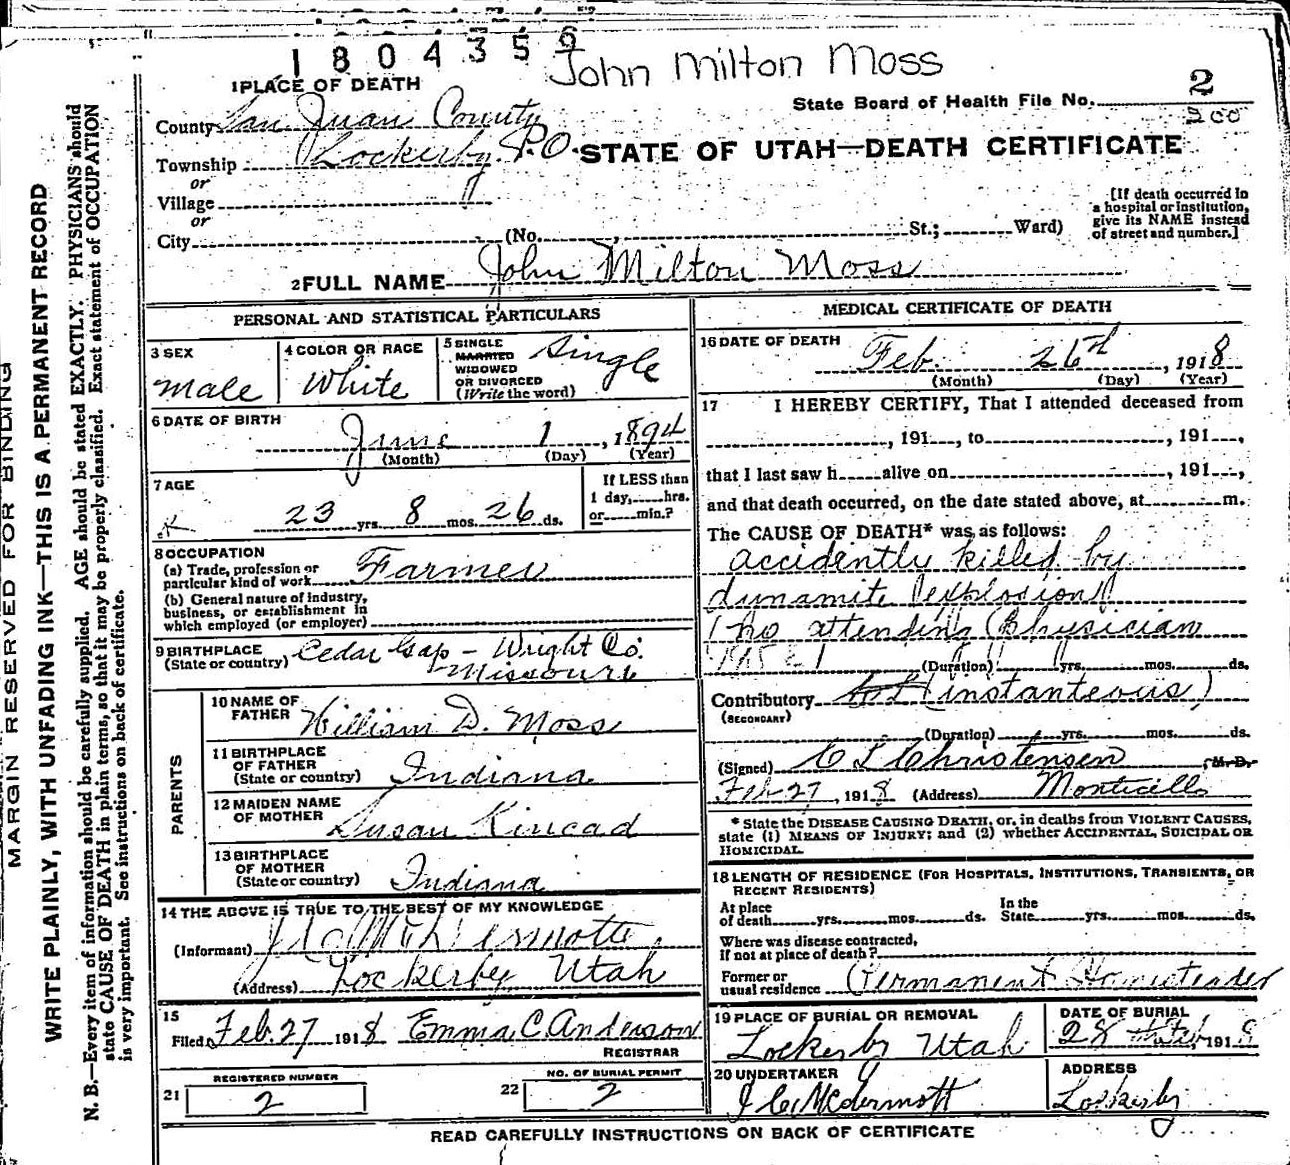 1804356
John Milton Moss
1 PLACE OF DEATH
State Board of Health File No. 2
200
County San Juan County
Township Lockerby P.O.
STATE OF UTAH—DEATH CERTIFICATE
or
Village
or
City (No. , St.; Ward)
[If death occurred in
a hospital or institution,
give its NAME instead
of street and number.]
2 FULL NAME John Milton Moss
PERSONAL AND STATISTICAL PARTICULARS
3 SEX
male
4 COLOR OR RACE
White
5 SINGLE
MARRIED
WIDOWED
OR DIVORCED
(Write the word)
Single
6 DATE OF BIRTH
June 1, 1894
(Month) (Day) (Year)
7 AGE
23 yrs. 8 mos. 26 ds.
If LESS than
1 day, hrs.
or min.?
8 OCCUPATION
(a) Trade, profession or
particular kind of work Farmer
(b) General nature of industry,
business, or establishment in
which employed (or employer)
9 BIRTHPLACE
(State or country) Cedar Gap - Wright Co.
Missouri
PARENTS
10 NAME OF
FATHER William D. Moss
11 BIRTHPLACE
OF FATHER
(State or country) Indiana
12 MAIDEN NAME
OF MOTHER Susan Kincad
13 BIRTHPLACE
OF MOTHER
(State or country) Indiana
14 THE ABOVE IS TRUE TO THE BEST OF MY KNOWLEDGE
(Informant)
(Address) Lockerby Utah
15
Filed Feb. 27 1918 Emma C. Anderson
REGISTRAR
21 REGISTERED NUMBER
2
22 NO. OF BURIAL PERMIT
2
MEDICAL CERTIFICATE OF DEATH
16 DATE OF DEATH
Feb. 26th, 1918
(Month) (Day) (Year)
17 I HEREBY CERTIFY, That I attended deceased from
, 191 , to , 191 ,
that I last saw h alive on , 191 ,
and that death occurred, on the date stated above, at m.
The CAUSE OF DEATH* was as follows:
accidently killed by
dunamite explosion
(no attending physician
(Duration) yrs. mos. ds.
Contributory (instanteous)
(SECONDARY)
(Duration) yrs. mos. ds.
(Signed) Christensen M.D.
Feb 27, 1918 (Address) Monticello
* State the DISEASE CAUSING DEATH, or, in deaths from VIOLENT CAUSES,
state (1) MEANS OF INJURY; and (2) whether ACCIDENTAL, SUICIDAL OR
HOMICIDAL.
18 LENGTH OF RESIDENCE (FOR HOSPITALS, INSTITUTIONS, TRANSIENTS, OR
RECENT RESIDENTS)
At place
of death yrs. mos. ds.
In the
State yrs. mos. ds.
Where was disease contracted,
If not at place of death?
Former or
usual residence Permanent Homesteader
19 PLACE OF BURIAL OR REMOVAL
Lockerby Utah
DATE OF BURIAL
28 Feb, 1918
20 UNDERTAKER
McDermott
ADDRESS
Lockerby
READ CAREFULLY INSTRUCTIONS ON BACK OF CERTIFICATE
MARGIN RESERVED FOR BINDING
WRITE PLAINLY, WITH UNFADING INK—THIS IS A PERMANENT RECORD
N. B.—Every item of information should be carefully supplied. AGE should be stated EXACTLY. PHYSICIANS should
state CAUSE OF DEATH in plain terms, so that it may be properly classified. Exact statement of OCCUPATION
is very important. See instructions on back of certificate.